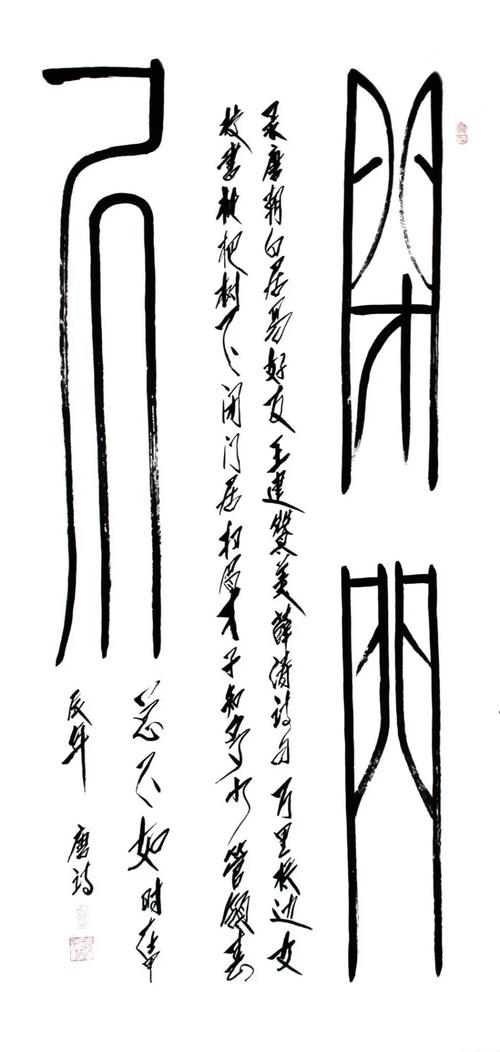 閉門
凥
录唐朝白居易好友王建赞美薛涛诗句 万里桥边女
校书枇杷树下闭门居扫眉才子知多少管领春
总不如 时在甲
辰年 唐诗